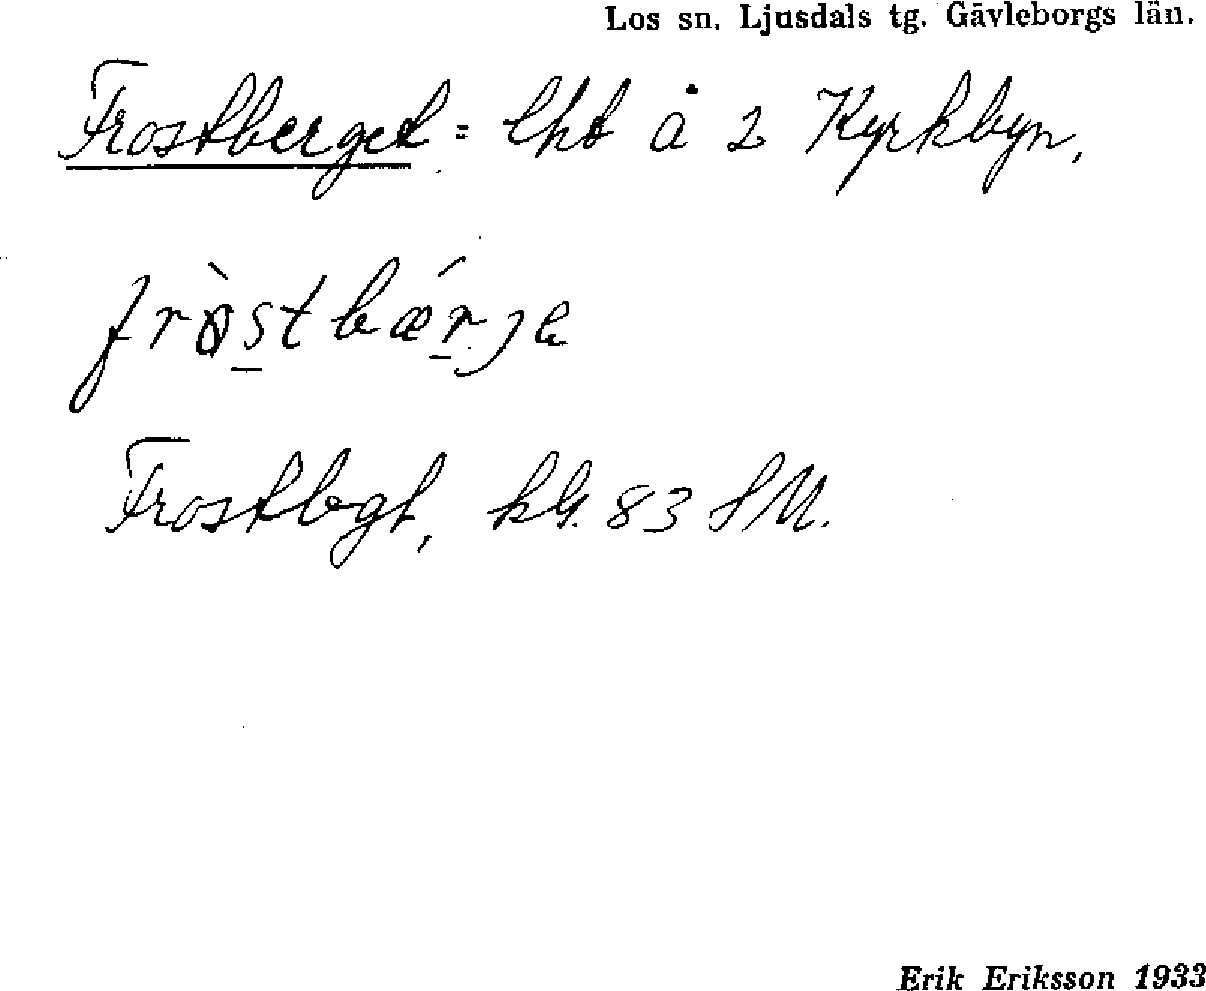 Los sn. Ljusdals tg. Gävleborgs län.
Frostberget = lht å 2 Kyrkbyn,
fròstbǽrje
Frostbgt, kbl. 83 SM.
Erik Eriksson 1933